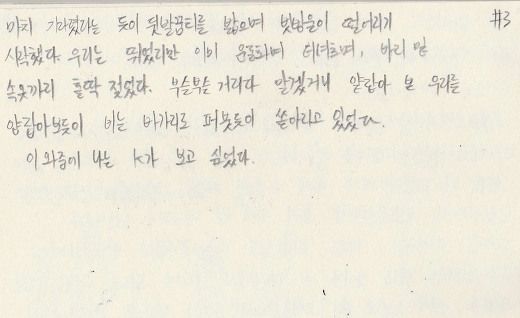 마치 기다렸다는 듯이 뒷발꿈티를 밟으며 빗방울이 떨어리기 #3
시작했다. 우리는 뛰었지만 이미 운동화며 티셔츠며, 바리 밑
속옷까지 홀딱 젖었다. 부슬부슬 거리다 말겠거니 얕잡아 본 우리를
앙갚아보듯이 비는 바가지로 퍼붓듯이 쏟아리고 있었다.
이 와중에 나는 K가 보고 싶었다.